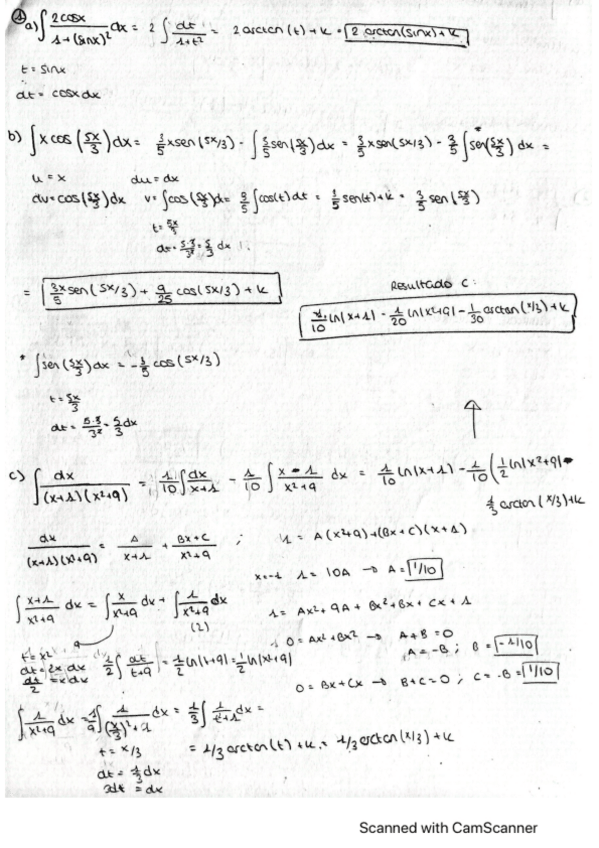 ① a) ∫ 2cosx / 1+(sinx)² dx = 2 ∫ dt / 1+t² = 2 arctan (t) + k = 2 arctan(sinx) + k
t = sinx
dt = cosx dx
b) ∫ x cos (5x/3) dx = 3/5 x sen (5x/3) - ∫ 3/5 sen(5x/3) dx = 3/5 x sen(5x/3) - 3/5 ∫ sen(5x/3)* dx =
u = x du = dx
dv = cos(5x/3) dx v = ∫ cos(5x/3) dx = 3/5 ∫ cos(t) dt = 3/5 sen(t) + k = 3/5 sen(5x/3)
t = 5x/3
dt = 5·3/3² = 5/3 dx
= 3x/5 sen(5x/3) + 9/25 cos(5x/3) + k
Resultado c:
1/10 ln|x+1| - 1/20 ln|x²+9| - 1/30 arctan(x/3) + k
* ∫ sen(5x/3) dx = -3/5 cos(5x/3)
t = 5x/3
dt = 5·3/3² = 5/3 dx
c) ∫ dx / (x+1)(x²+9) = 1/10 ∫ dx / x+1 - 1/10 ∫ x - 1 / x²+9 dx = 1/10 ln|x+1| - 1/10 (1/2 ln|x²+9| -
1/3 arctan(x/3) + k
dx / (x+1)(x²+9) = A / x+1 + Bx+C / x²+9 ; 1 = A(x²+9) + (Bx+C)(x+1)
x=-1 1 = 10A → A = 1/10
∫ x+1 / x²+9 dx = ∫ x / x²+9 dx + ∫ 1 / x²+9 dx
(2)
1 = Ax² + 9A + Bx² + Bx + Cx + 1
0 = Ax² + Bx² → A+B = 0
A = -B ; B = -1/10
t = x²
dt = 2x dx
dt/2 = x dx
1/2 ∫ dt / t+9 = 1/2 ln|t+9| = 1/2 ln|x²+9|
0 = Bx + Cx → B+C = 0 ; C = -B = 1/10
∫ 1 / x²+9 dx = 1/9 ∫ 1 / (x/3)²+1 dx = 1/3 ∫ 1 / t²+1 dx =
t = x/3
= 1/3 arctan(t) + k = 1/3 arctan(x/3) + k
dt = 1/3 dx
3dt = dx
Scanned with CamScanner